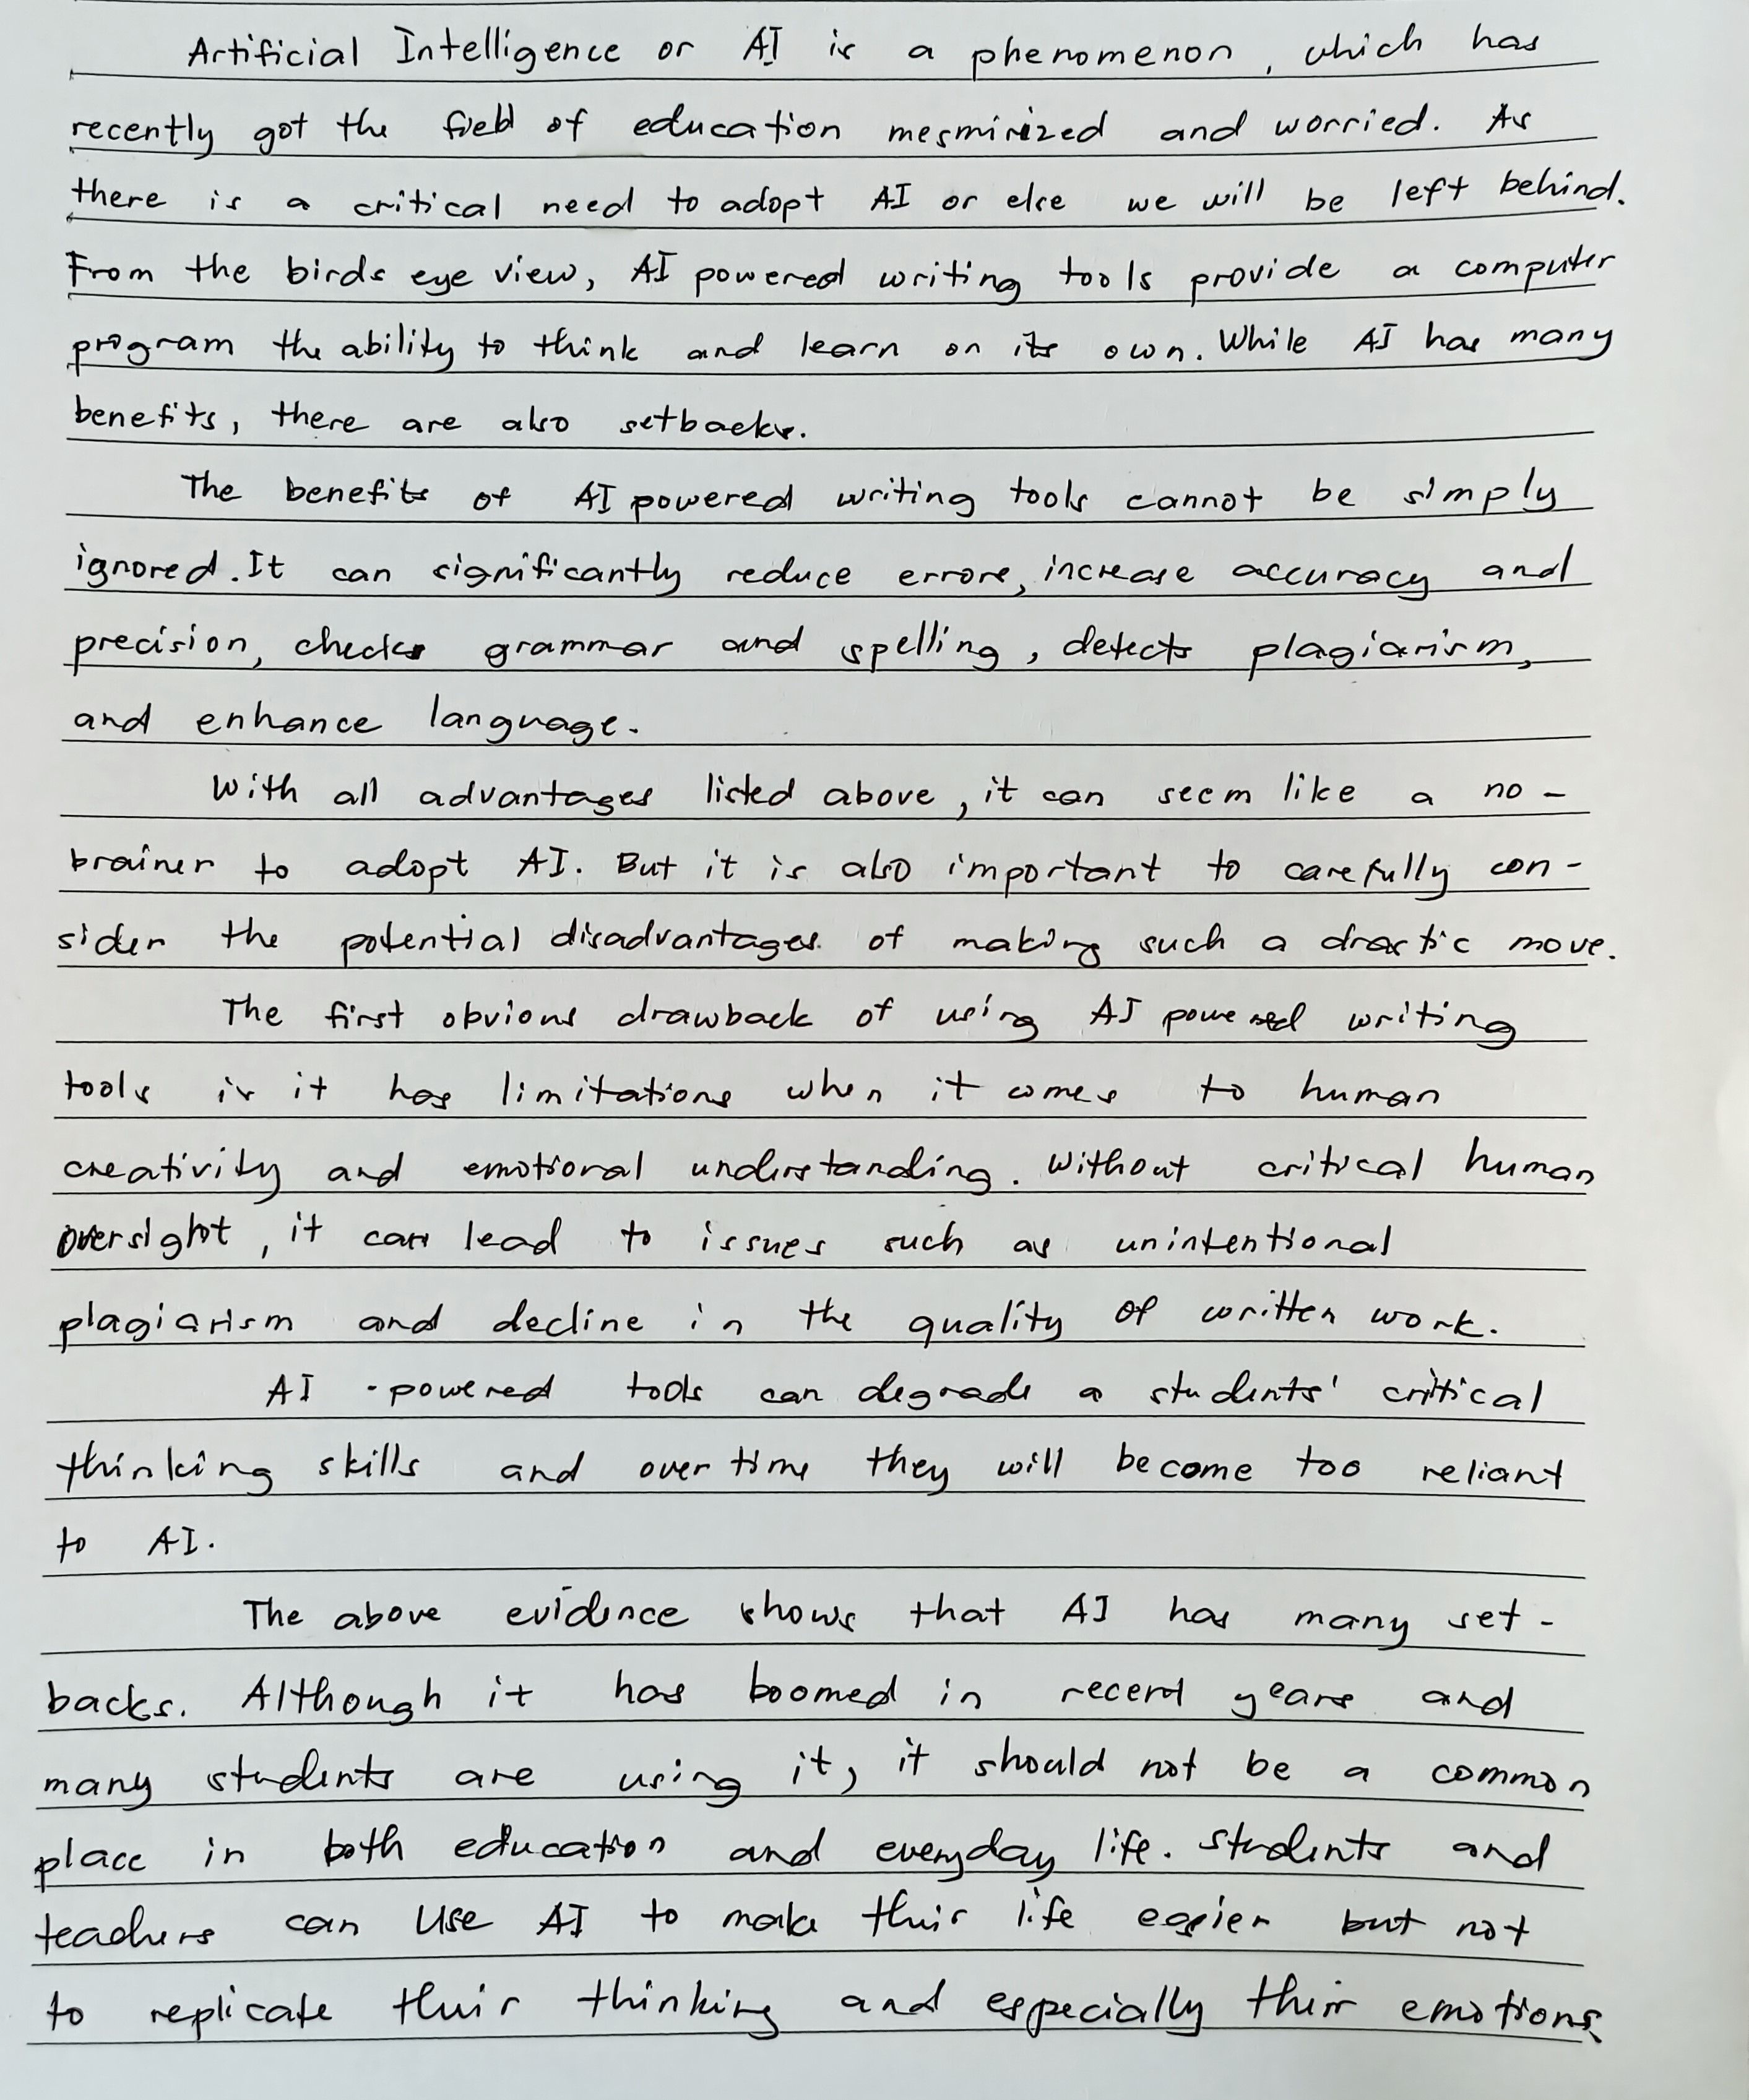 Artificial Intelligence or AI is a phenomenon, which has
recently got the field of education mesmirized and worried. As
there is a critical need to adopt AI or else we will be left behind.
From the birds eye view, AI powered writing tools provide a computer
program the ability to think and learn on its own. While AI has many
benefits, there are also setbacks.
The benefits of AI powered writing tools cannot be simply
ignored. It can significantly reduce errors, increase accuracy and
precision, checks grammar and spelling, detects plagiarism,
and enhance language.
With all advantages listed above, it can seem like a no-
brainer to adopt AI. But it is also important to carefully con-
sider the potential disadvantages of making such a drastic move.
The first obvious drawback of using AI powered writing
tools is it has limitations when it comes to human
creativity and emotional understanding. Without critical human
oversight, it can lead to issues such as unintentional
plagiarism and decline in the quality of written work.
AI -powered tools can degrade a students' critical
thinking skills and over time they will become too reliant
to AI.
The above evidence shows that AI has many set-
backs. Although it has boomed in recent years and
many students are using it, it should not be a common
place in both education and everyday life. Students and
teachers can use AI to make their life easier but not
to replicate their thinking and especially their emotions.